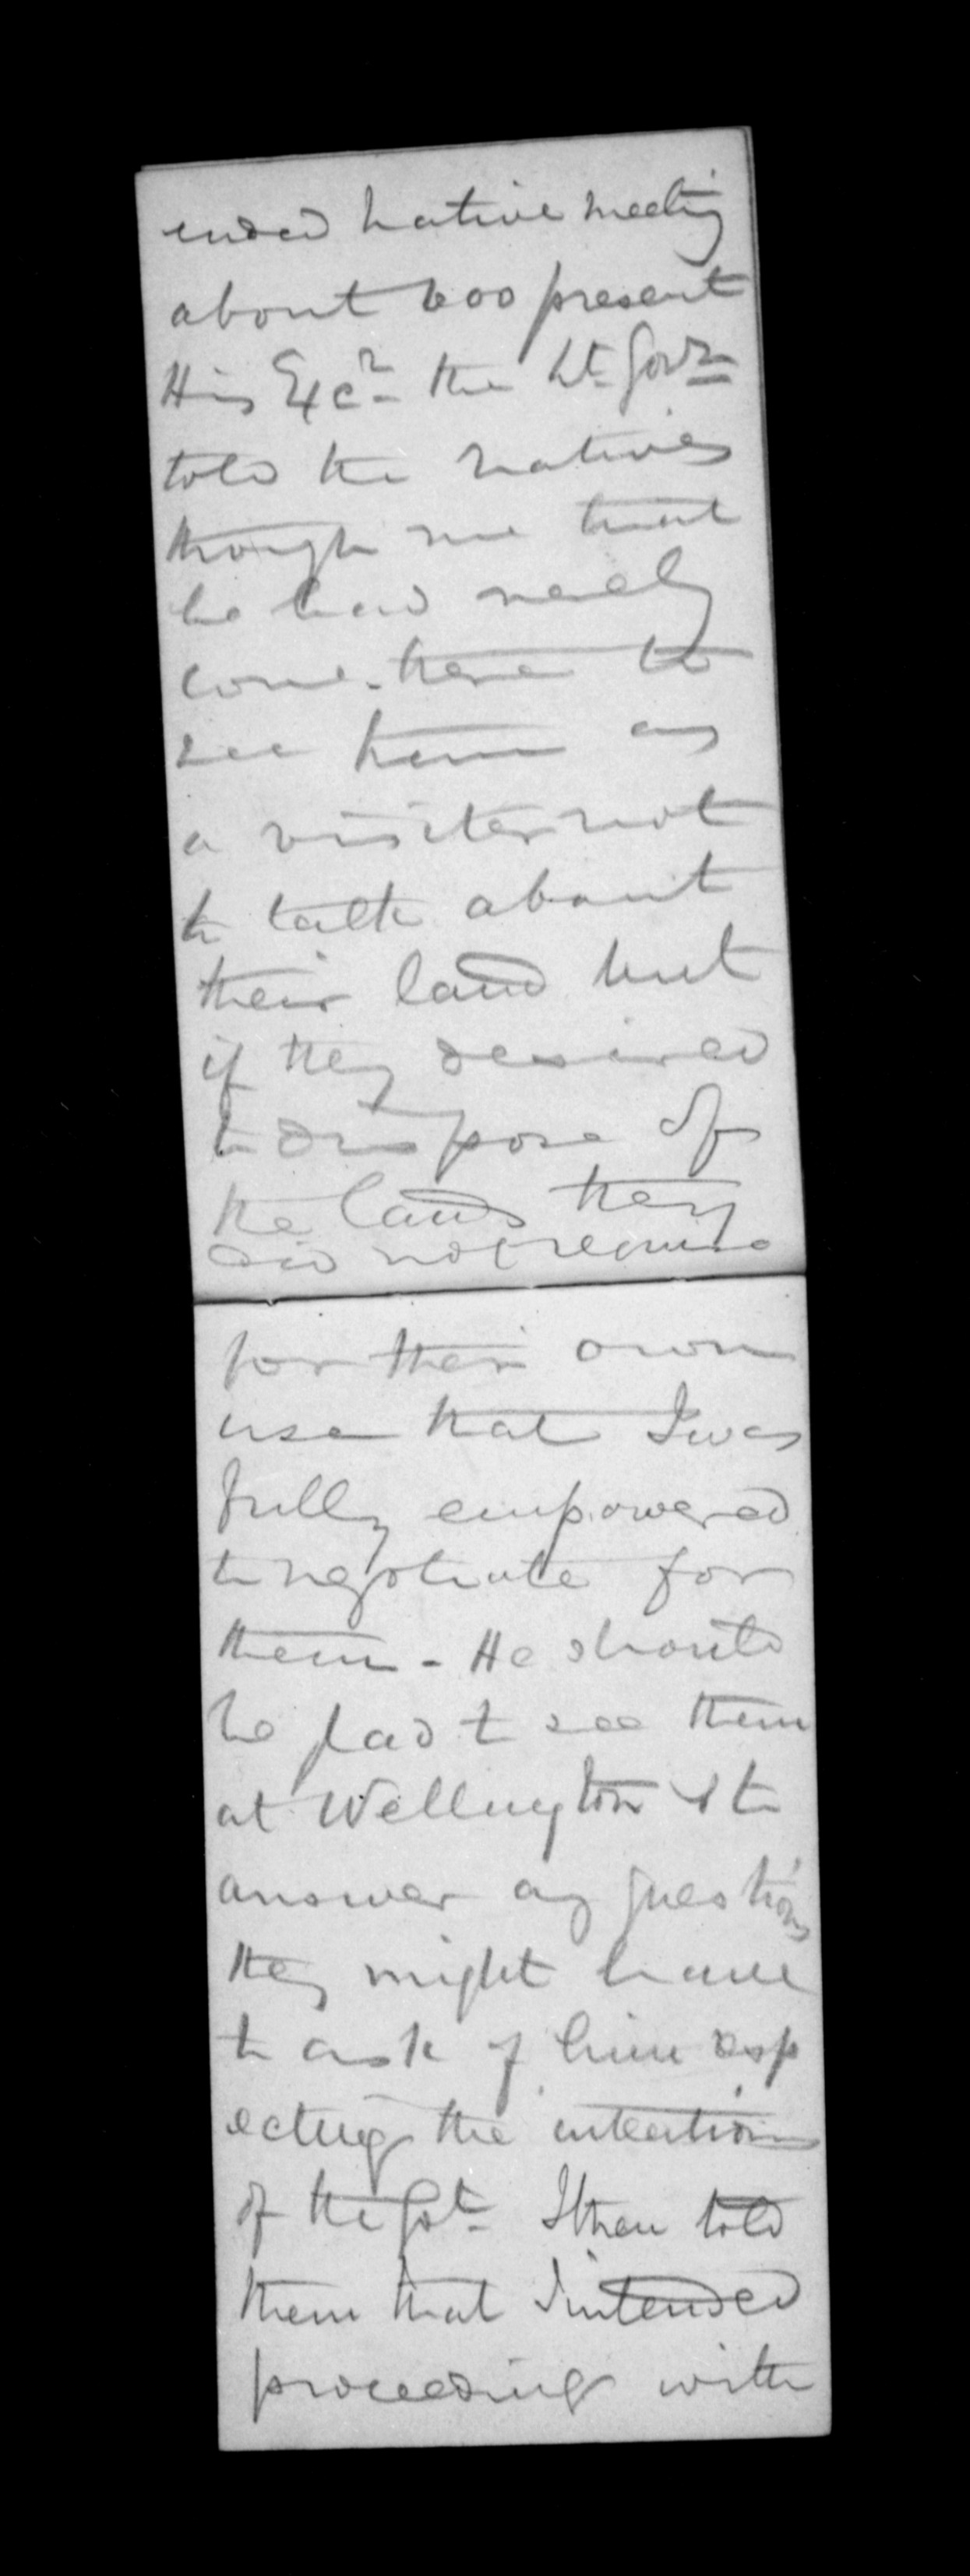 ended native meeting
about 600 present
His Excy. the Lt. Govr.
told the natives
through me that
he had merely
come here to
see them as
a visiter not
to talk about
their land but
if they desired
to dispose of
the lands they
did not require
for their own
use that I was
fully empowered
to negotiate for
them - He should
be glad to see them
at Wellington & to
answer any questions
they might have
to ask of him resp
ecting the intentions
of the Govt. I then told
them that I intended
proceeding with